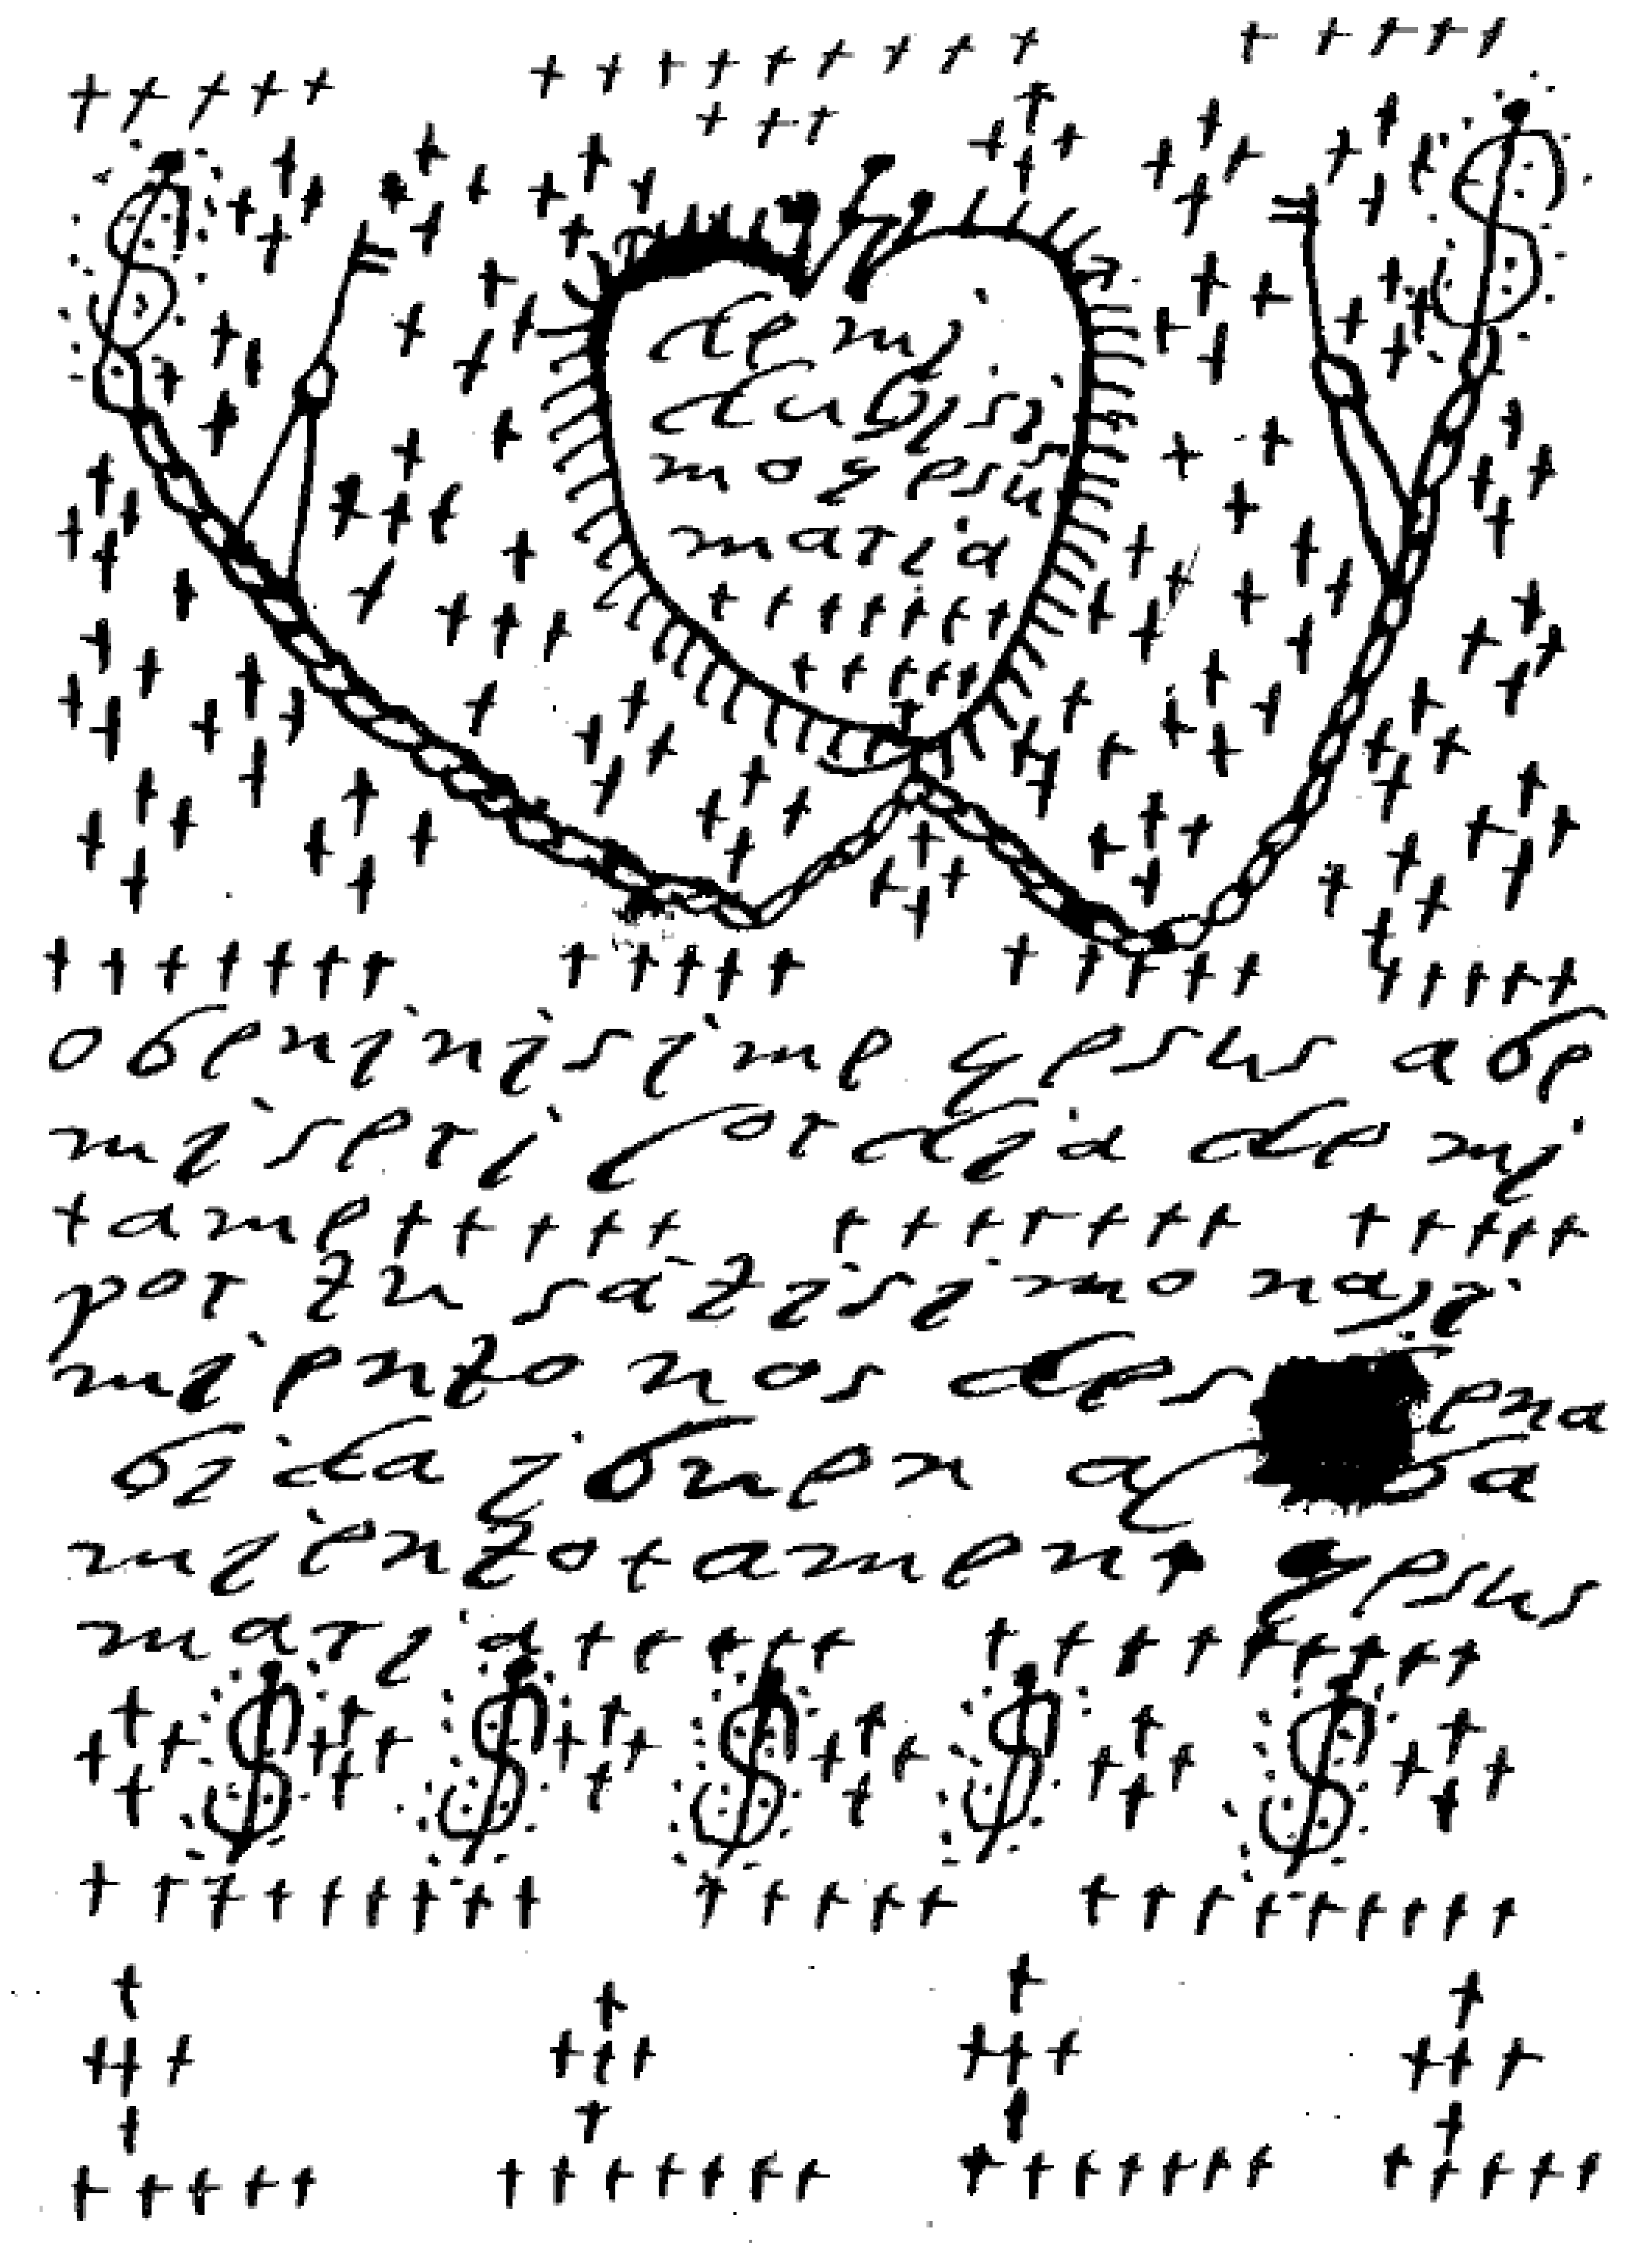 de mi
dulsisi
mo yesus
maria
o beninisime yesus abe
miseri cordia de mi
+ ame + + + + +
por tu sãtisimo nasi
miento nos des
bida i buen
miento + amen + yesus
maria